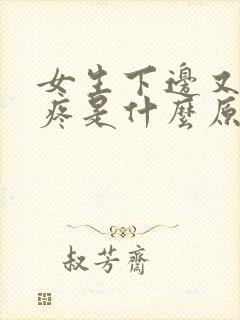 女生下邊又
疼是什麼原
叔芳齋